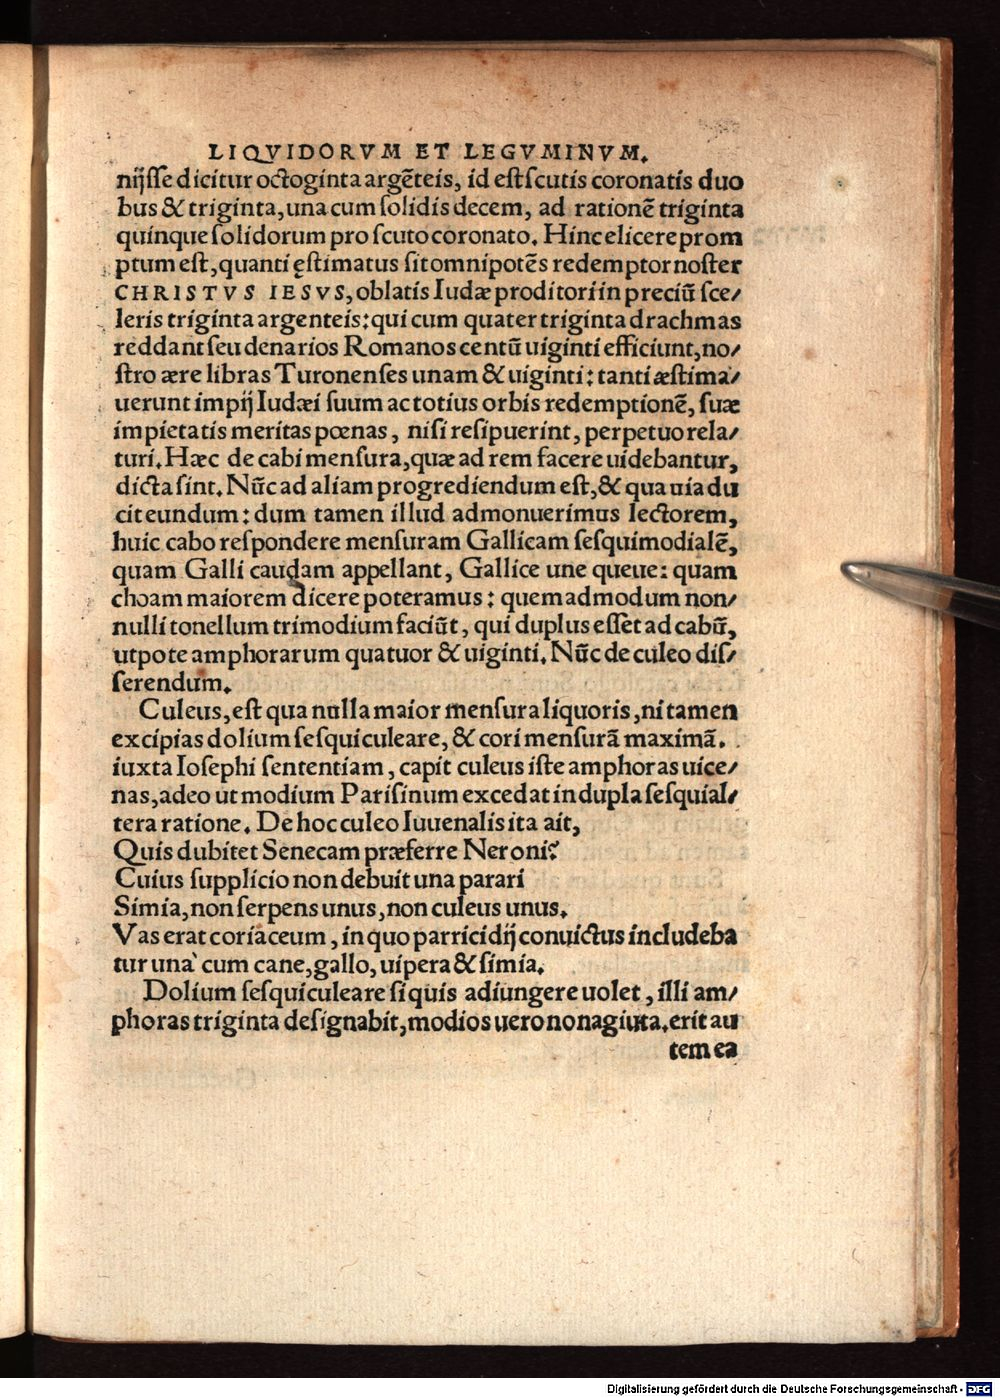 LIQVIDORVM ET LEGVMINVM.
nijſſe dicitur octoginta argẽteis, id eſt ſcutis coronatis duo
bus & triginta, una cum ſolidis decem, ad rationẽ triginta
quinque ſolidorum pro ſcuto coronato. Hinc elicere prom
ptum eſt, quanti ęſtimatus ſit omnipotẽs redemptor noſter
CHRISTVS IESVS, oblatis Iudæ proditori in preciũ ſce/
leris triginta argenteis: qui cum quater triginta drachmas
reddant ſeu denarios Romanos centũ uiginti efficiunt, no/
ſtro ære libras Turonenſes unam & uiginti: tanti æſtima/
uerunt impij Iudæi ſuum ac totius orbis redemptionẽ, ſuæ
impietatis meritas pœnas, niſi reſipuerint, perpetuo rela/
turi. Hæc de cabi menſura, quæ ad rem facere uidebantur,
dicta ſint. Nũc ad aliam progrediendum eſt, & qua uia du
cit eundum: dum tamen illud admonuerimus lectorem,
huic cabo reſpondere menſuram Gallicam ſeſquimodialẽ,
quam Galli caudam appellant, Gallice une queue: quam
choam maiorem dicere poteramus: quemadmodum non/
nulli tonellum trimodium faciũt, qui duplus eſſet ad cabũ,
utpote amphorarum quatuor & uiginti. Nũc de culeo diſ/
ſerendum.
Culeus, eſt qua nulla maior menſura liquoris, ni tamen
excipias dolium ſeſquiculeare, & cori menſurã maximã.
iuxta Ioſephi ſententiam, capit culeus iſte amphoras uice/
nas, adeo ut modium Pariſinum excedat in dupla ſeſquial/
tera ratione. De hoc culeo Iuuenalis ita ait,
Quis dubitet Senecam præferre Neroni?
Cuius ſupplicio non debuit una parari
Simia, non ſerpens unus, non culeus unus.
Vas erat coriaceum, in quo parricidij conuictus includeba
tur unà cum cane, gallo, uipera & ſimia.
Dolium ſeſquiculeare ſi quis adiungere uolet, illi am/
phoras triginta deſignabit, modios uero nonagiuta. erit au
tem ea
Digitalisierung gefördert durch die Deutsche Forschungsgemeinschaft - DFG